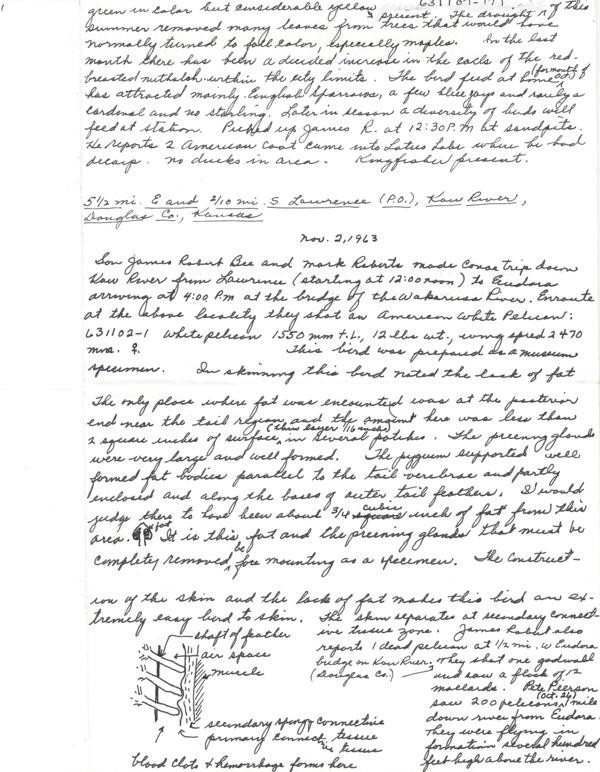 green in color but considerable yellow is present. The drought of this
summer removed many leaves from trees that would have
normally turned to fall color, especially maples. In the last
month there has been a decided increase in the calls of the red-
breasted nuthatch within the city limits. The bird feed at home (for month of Oct)
has attracted mainly English Sparrows, a few blue jays and rarely a
cardinal and no starling. Later in season a diversity of birds will
feed at station. Picked up James R. at 12:30 P.M at sandpits.
He reports 2 American Coot came into Lake where he had
decoys. no ducks in area. Kingfisher present.
5 1/2 mi. E and 2/10 mi. S Lawrence (P.O.), Kaw River,
Douglas Co., Kansas
Nov. 2, 1963
Son James Robert Bee and Mark Roberts made Canoe trip down
Kaw River from Lawrence (starting at 12:00 noon) to Eudora
arriving at 4:00 P.M at the bridge of the Wakarusa River. Enroute
at the above locality they shot an American White Pelican:
631102-1 White pelican 1550 mm t.L., 12 lbs wt., wing spred 2470
mm. ♀. This bird was prepared as a museum
specimen. In skinning this bird noted the lack of fat
The only place where fat was encountered was at the posterior
end near the tail region and the amount here was less than
2 square inches of surface (thin layer 1/16 inch) in several patches. The preening glands
were very large and well formed. The pygium supported well
formed fat bodies parallel to the tail verebrae and partly
enclosed and along the bases of outer tail feathers. I would
judge there to have been about 3/4 cubic square inch of fat from this
area. fat It is this fat and the preening glands that must be
completely removed be fore mounting as a specimen. The construct-
ion of the skin and the lack of fat makes this bird an ex-
tremely easy bird to skin. The skin separates at secondary connect-
ive tissue zone. James Robert also
reports 1 dead pelican at 1/2 mi. W Eudora
bridge on Kaw River. They shot one gadwall
(Douglas Co.) and saw a flock of 12
mallards. Pete Peerson
saw 200 pelicans (Oct. 26) 1 mile
down river from Eudora.
They were flying in
formation several hundred
feet high above the river.
shaft of feather
air space
muscle
secondary spongy connective
primary connective tissue
tissue
blood clots & hemorrhage forms here